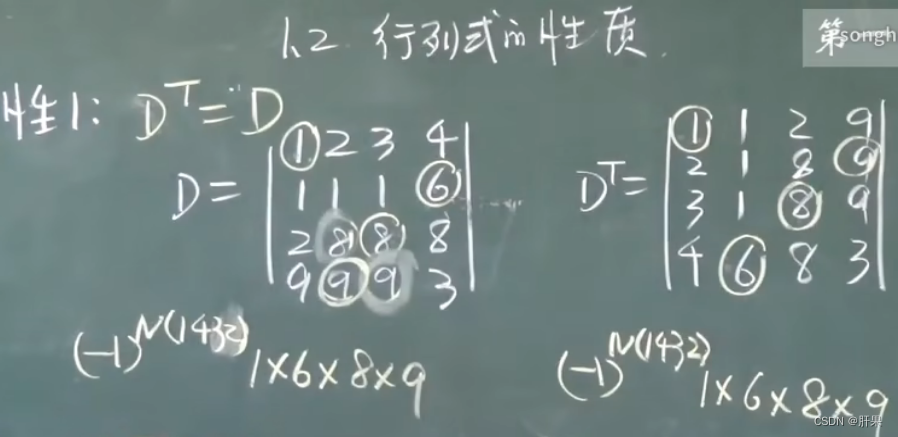 1.2 行列式的性质
第一
songh
性1: D^T = D
D = | 1 2 3 4 |
| 1 1 1 6 |
| 2 8 8 8 |
| 9 9 9 3 |
D^T = | 1 1 2 9 |
| 2 1 8 9 |
| 3 1 8 9 |
| 4 6 8 3 |
(-1)^N(1432) 1×6×8×9
(-1)^N(1432) 1×6×8×9
CSDN @肝果